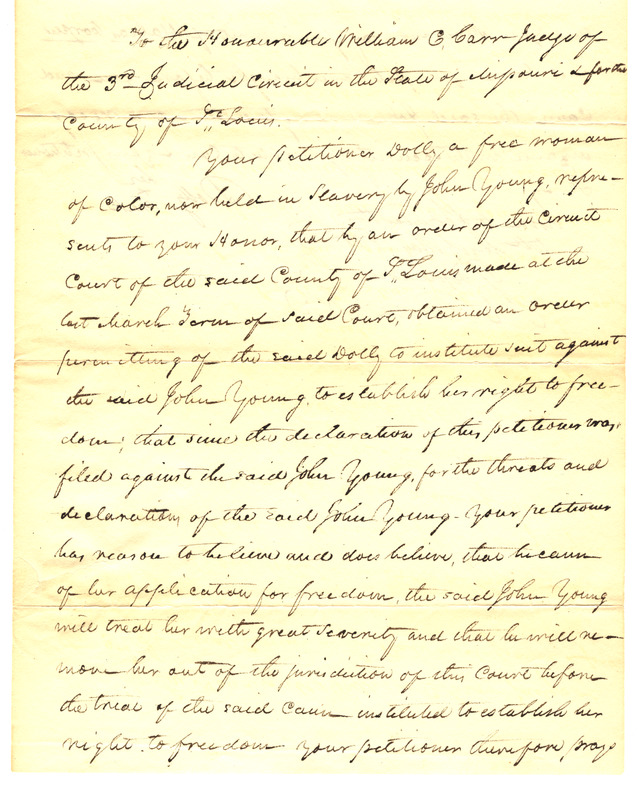 To the Honourable William C. Carr Judge of
the 3rd Judicial Circuit in the State of Missouri & for the
County of St. Louis.
Your petitioner Dolly a free woman
of Color, now held in Slavery by John Young, repre-
sents to your Honor, that by an order of the Circuit
Court of the said County of St. Louis made at the
last March Term of said Court, obtained an order
permitting of the said Dolly to institute suit against
the said John Young, to establish her right to free-
dom; that since the declaration of this petitioner was
filed against the said John Young, for the threats and
declarations of the said John Young - Your petitioner
has reason to believe and does believe, that because
of her application for freedom, the said John Young
will treat her with great severity and that he will re-
move her out of the jurisdiction of this Court before
the trial of the said Cause instituted to establish her
right to freedom your petitioner therefore, prays